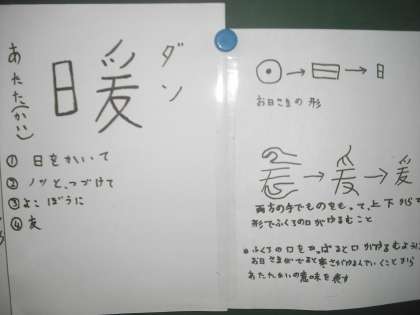 あたた(かい)
暖
ダン
① 日をかいて
② ノツとつづけて
③ よこぼうに
④ 友
お日さまの形
両方の手でものをもって、上下から
形でふくろの口がゆるむこと
ふくろの口をひっぱると口がゆるむように
お日さまがでると寒さがゆるんでいくことから
あたたかいの意味を表す